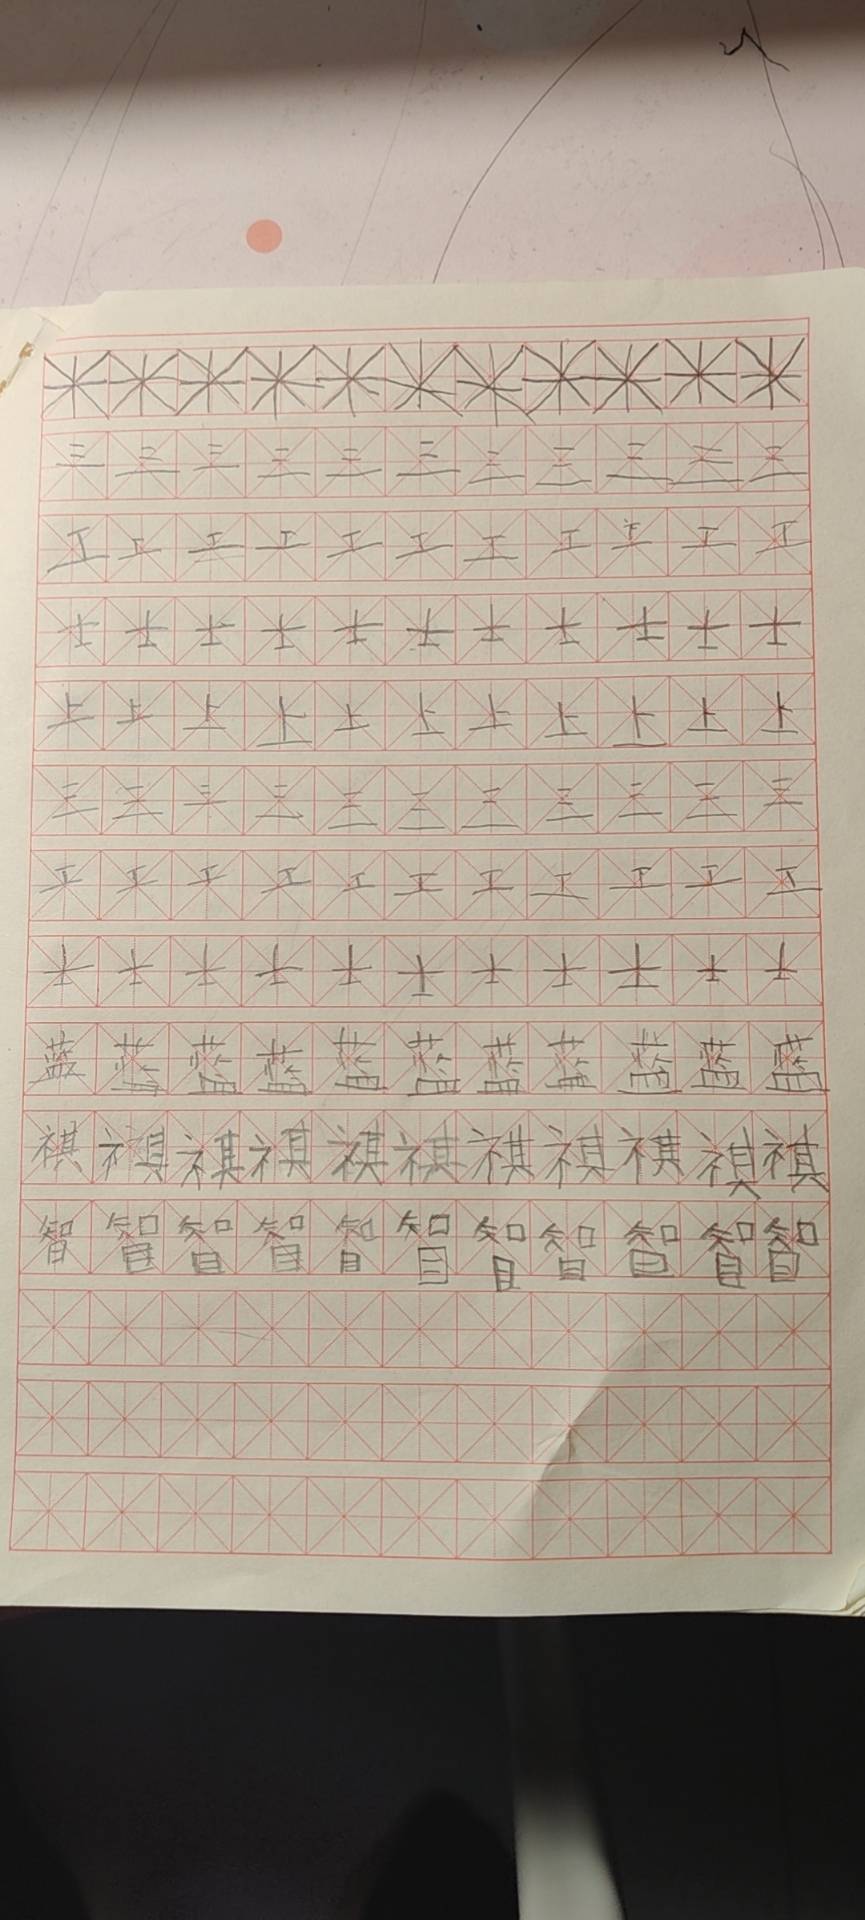 米米米米米米米米米米米
三三三三三三三三三三三
工工工工工工工工工工工
士士士士士士士士士士士
上上上上上上上上上上上
三三三三三三三三三三三
工工工工工工工工工工工
士士士士士士士士士士士
蓝蓝蓝蓝蓝蓝蓝蓝蓝蓝蓝
祺祺祺祺祺祺祺祺祺祺祺
智智智智智智智智智智智